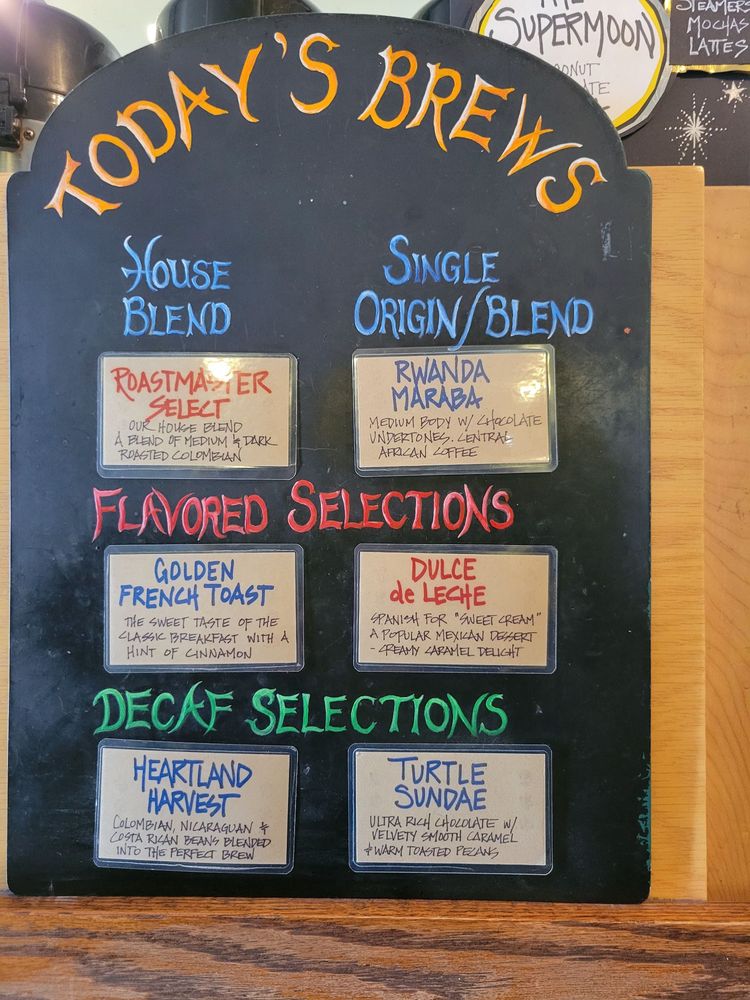 THE
SUPERMOON
STEAMERS
MOCHAS
LATTES
TODAY'S BREWS
HOUSE
BLEND
SINGLE
ORIGIN/BLEND
ROASTMASTER
SELECT
OUR HOUSE BLEND
A BLEND OF MEDIUM & DARK
ROASTED COLOMBIAN
RWANDA
MARABA
MEDIUM BODY W/ CHOCOLATE
UNDERTONES. CENTRAL
AFRICAN COFFEE
FLAVORED SELECTIONS
GOLDEN
FRENCH TOAST
THE SWEET TASTE OF THE
CLASSIC BREAKFAST WITH A
HINT OF CINNAMON
DULCE
de LECHE
SPANISH FOR "SWEET CREAM"
A POPULAR MEXICAN DESSERT
- CREAMY CARAMEL DELIGHT
DECAF SELECTIONS
HEARTLAND
HARVEST
COLOMBIAN, NICARAGUAN &
COSTA RICAN BEANS BLENDED
INTO THE PERFECT BREW
TURTLE
SUNDAE
ULTRA RICH CHOCOLATE W/
VELVETY SMOOTH CARAMEL
& WARM TOASTED PECANS